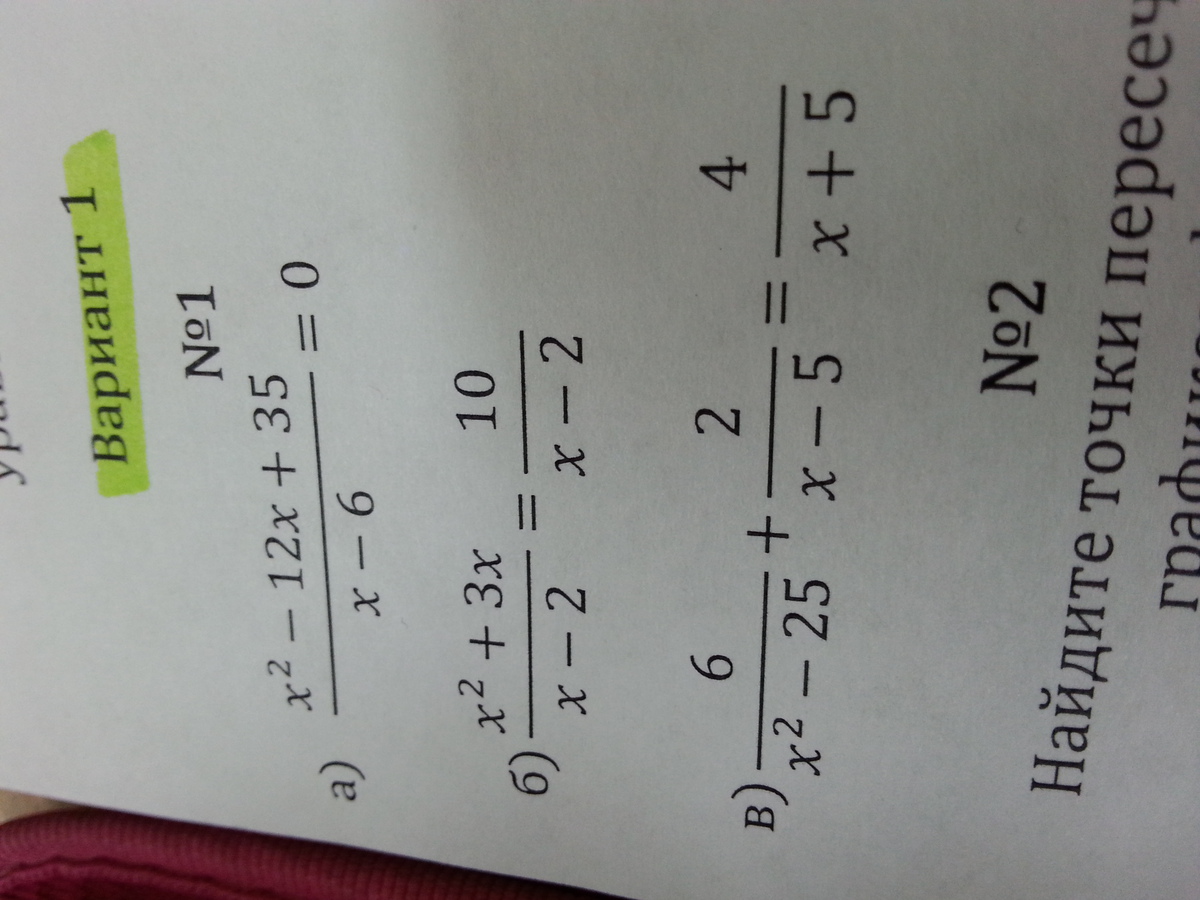 Вариант 1
№1
а) (x² − 12x + 35)/(x − 6) = 0
б) (x² + 3x)/(x − 2) = 10/(x − 2)
в) 6/(x² − 25) + 2/(x − 5) = 4/(x + 5)
№2
Найдите точки